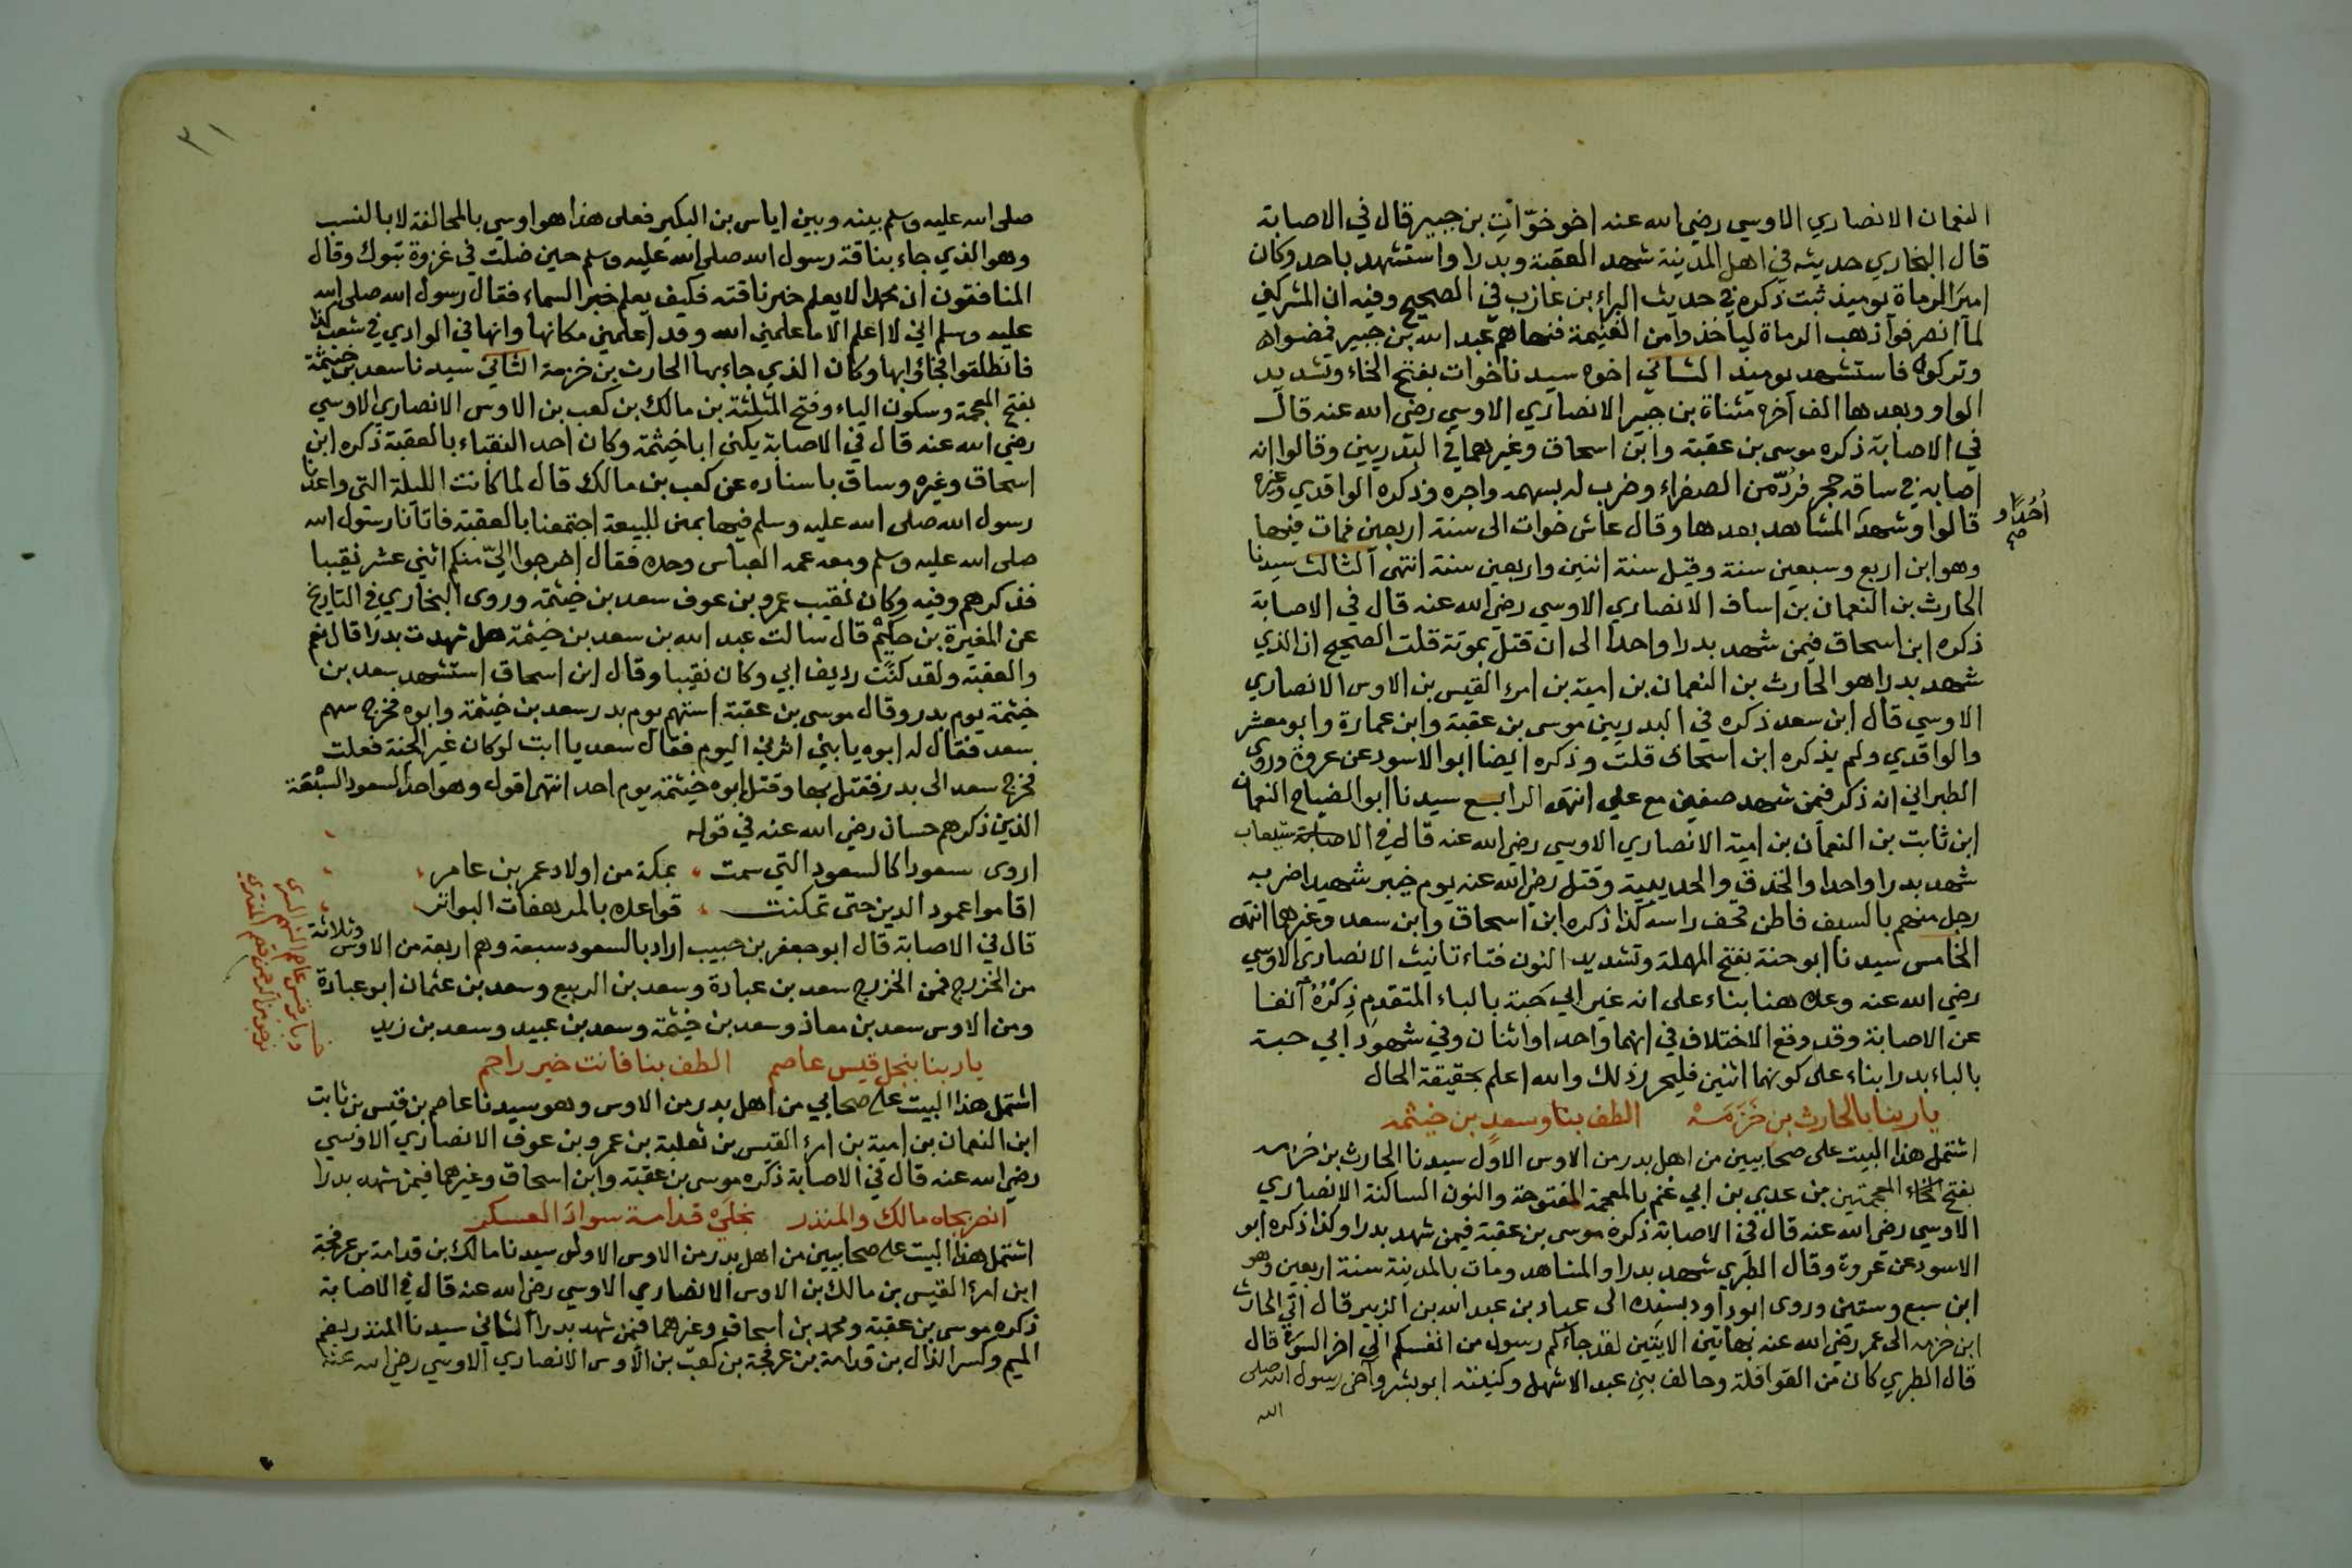 النعمان الانصاري الاوسي رضي الله عنه اخو خوّاتِ بن جبير قال في الاصابة
قال البخاري حديثه في اهل المدينة شهد العقبة وبدرا واستشهد باحد وكان
اميرَ الرماة يوميذ ثبت ذكره في حديث البراء بن عازب في الصحيح وفيه ان المشركين
لما انصرفوا ذهب الرماة لياخذوا من الغنيمة فنهاهم عبد الله بن جبير فمضوا
وتركوه فاستشهد يوميذ الثاني اخوه سيدنا خوات بفتح الخاء وتشديد
الواو وبعدها الف اخره مثناة بن جبير الانصاري الاوسي رضي الله عنه قال
في الاصابة ذكره موسى بن عقبة وابن اسحاق وغيرهما في البدريين وقالوا انه
اصابه في ساقه حجر فرُدّ من الصفراء وضرب له بسهمه واجره وذكره الواقدي وغيره
قالوا وشهد احُدًا والمشاهد بعدها وقال عاش خوات الى سنة اربعين فمات فيها
وهو ابن اربع وسبعين سنة وقيل سنة اثنين واربعين سنة انتهى الثالث سيدنا
الحارث بن النعمان بن اساف الانصاري الاوسي رضي الله عنه قال في الاصابة
ذكره ابن اسحاق فيمن شهد بدرا واحدا الى ان قتل بموتة قلت الصحيح ان الذي
شهد بدرا هو الحارث بن النعمان بن امية بن امرء القيس بن الاوس الانصاري
الاوسي قال ابن سعد ذكره في البدريين موسى بن عقبة وابن عمارة وابو معشر
والواقدي ولم يذكره ابن اسحاق قلت وذكره ايضا ابو الاسود عن عروة وروى
الطبراني انه ذكر فيمن شهد صفين مع علي انتهى الرابع سيدنا ابو الضياح النعمان
ابن ثابت بن النعمان بن امية الانصاري الاوسي رضي الله عنه قال في الاستيعاب
شهد بدرا واحدا والخندق والحديبية وقتل رضي الله عنه يوم خيبر شهيدا ضربه
رجل منهم بالسيف فاطن قحف راسه كذا ذكره ابن اسحاق وابن سعد وغيرهما انتهى
الخامس سيدنا ابو حنة بفتح المهملة وتشديد النون فتاء تانيث الانصاري الاوسي
رضي الله عنه وعده هنا بناء على انه غير ابي حَبة بالباء المتقدمِ ذِكرُهُ آنفا
عن الاصابة وقد وقع الاختلاف في انهما واحد او اثنان وفي شهود ابي حبة
بالباء بدرا بناء على كونهما اثنين فليحرر ذلك والله اعلم بحقيقة الحال
يا ربنا بالحارث بن خَزَمَهْ الطف بنا وسعدِ بن خيثمه
اشتمل هذا البيت على صحابيين من اهل بدر من الاوس الاول سيدنا الحارث بن خزمه
بفتح الخاء المعجمتين بن عدي بن ابي غنم بالمعجمة المفتوحة والنون الساكنة الانصاري
الاوسي رضي الله عنه قال في الاصابة ذكره موسى بن عقبة فيمن شهد بدرا وكذا ذكره ابو
الاسود عن عروة وقال الطبري شهد بدرا والمشاهد ومات بالمدينة سنة اربعين وهو
ابن سبع وستين وروى ابو داود بسنده الى عباد بن عبد الله بن الزبير قال اتى الحارث
ابن خزمه الى عمر رضي الله عنه بهاتين الايتين لقد جاءكم رسول من انفسكم الى اخر السورة قال
قال الطبري كان من القواقلة وحالف بني عبد الاشهل وكنيته ابو بشر وآخى رسول الله صلى
الله
٣١
صلى الله عليه وسلم بينه وبين اياس بن البكير فعلى هذا هو اوسي بالمحالفة لا بالنسب
وهو الذي جاء بناقة رسول الله صلى الله عليه وسلم حين ضلت في غزوة تبوك وقال
المنافقون ان محمدا لا يعلم خبر ناقته فكيف يعلم خبر السماء فقال رسول الله صلى الله
عليه وسلم اني لا اعلم الا ما علمني الله وقد اعلمني مكانها وانها في الوادي في شعب كذا
فانطلقوا فجاؤا بها وكان الذي جاء بها الحارث بن خزمة الثاني سيدنا سعد بن خيثمة
بفتح المعجمة وسكون الياء وفتح المثلثة بن مالك بن كعب بن الاوس الانصاري الاوسي
رضي الله عنه قال في الاصابة يكنى ابا خيثمة وكان احد النقباء بالعقبة ذكره ابن
اسحاق وغيره وساق باسناده عن كعب بن مالك قال لما كانت الليلة التي واعدنا
رسول الله صلى الله عليه وسلم فيها بمنى للبيعة اجتمعنا بالعقبة فاتانا رسول الله
صلى الله عليه وسلم ومعه عمه العباس وحده فقال اخرجوا اليّ منكم اثني عشر نقيبا
فذكرهم وفيه وكان نقيب عمرو بن عوف سعد بن خيثمة وروى البخاري في التاريخ
عن المغيرة بن حكيم قال سالت عبد الله بن سعد بن خيثمة هل شهدت بدرا قال نعم
والعقبة ولقد كنت رديف ابي وكان نقيبا وقال ابن اسحاق استشهد سعد بن
خيثمة يوم بدر وقال موسى بن عقبة استهم يوم بدر سعد بن خيثمة وابوه فخرج سهم
سعد فقال له ابوه يا بني اثرني اليوم فقال سعد يا ابت لو كان غير الجنة فعلت
فخرج سعد الى بدر فقتل بها وقتل ابوه خيثمة يوم احد انتهى اقول وهو احد السعود السبعة
الذين ذكرهم حسان رضي الله عنه في قوله
اروى سعودا كالسعود التي سمت بمكة من اولاد عمر بن عامر
اقاموا عمود الدين حتى تمكنت قواعده بالمرهفات البواتر
قال في الاصابة قال ابو جعفر بن حبيب اراد بالسعود سبعة وهم اربعة من الاوس وثلاثة
من الخزرج فمن الخزرج سعد بن عبادة وسعد بن الربيع وسعد بن عثمان ابو عبادة
ومن الاوس سعد بن معاذ وسعد بن خيثمة وسعد بن عبيد وسعد بن زيد
يا ربنا بنجل قيس عاصم الطف بنا فانت خير راحم
اشتمل هذا البيت على صحابي من اهل بدر من الاوس وهو سيدنا عاصم بن قيس بن ثابت
ابن النعمان بن امية بن امرء القيس بن ثعلبة بن عمرو بن عوف الانصاري الاوسي
رضي الله عنه قال في الاصابة ذكره موسى بن عقبة وابن اسحاق وغيرهما فيمن شهد بدرا
انصر بجاه مالك والمنذر نجلي قدامة سوادَ العسكر
اشتمل هذا البيت على صحابيين من اهل بدر من الاوس الاول سيدنا مالك بن قدامة بن عرفجة
ابن امرء القيس بن مالك بن الاوس الانصاري الاوسي رضي الله عنه قال في الاصابة
ذكره موسى بن عقبة ومحمد بن اسحاق وغيرهما فيمن شهد بدرا الثاني سيدنا المنذر بضم
الميم وكسر الذال بن قدامة بن عرفجة بن كعب بن الاوس الانصاري الاوسي رضي الله عنه